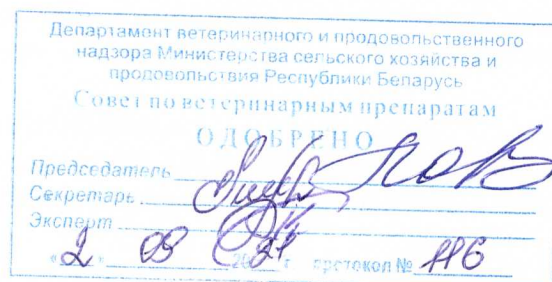 Департамент ветеринарного и продовольственного
надзора Министерства сельского хозяйства и
продовольствия Республики Беларусь
Совет по ветеринарным препаратам
ОДОБРЕНО
Председатель
Секретарь
Эксперт
«2» 09 2021 г протокол № 116